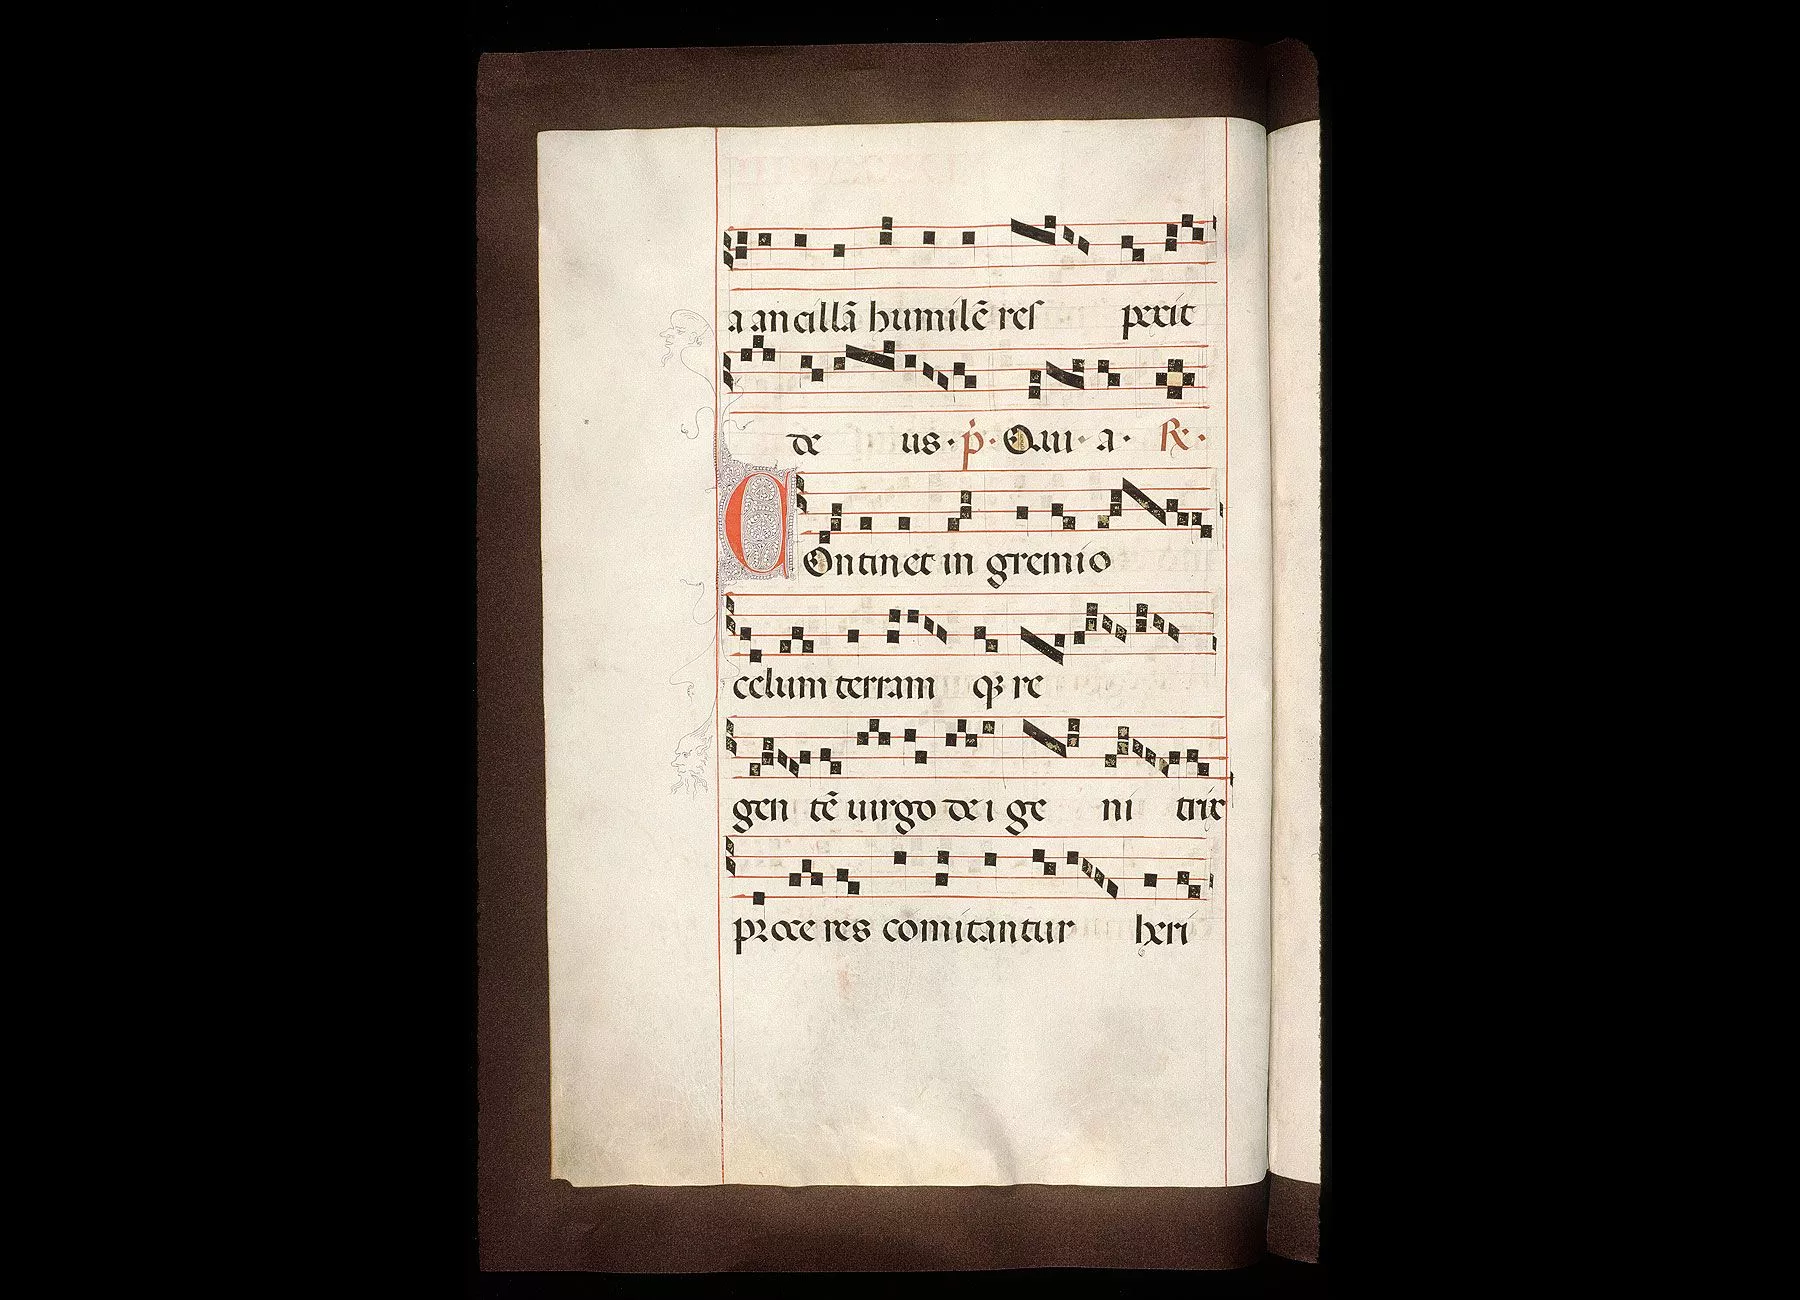 a ancillā humilē res pexit
de us · p̄ · Qui · a · ℟ ·
COntinet in gremio
celum terram qȝ re
gen tē uirgo de i ge ni trix
proce res comitantur heri